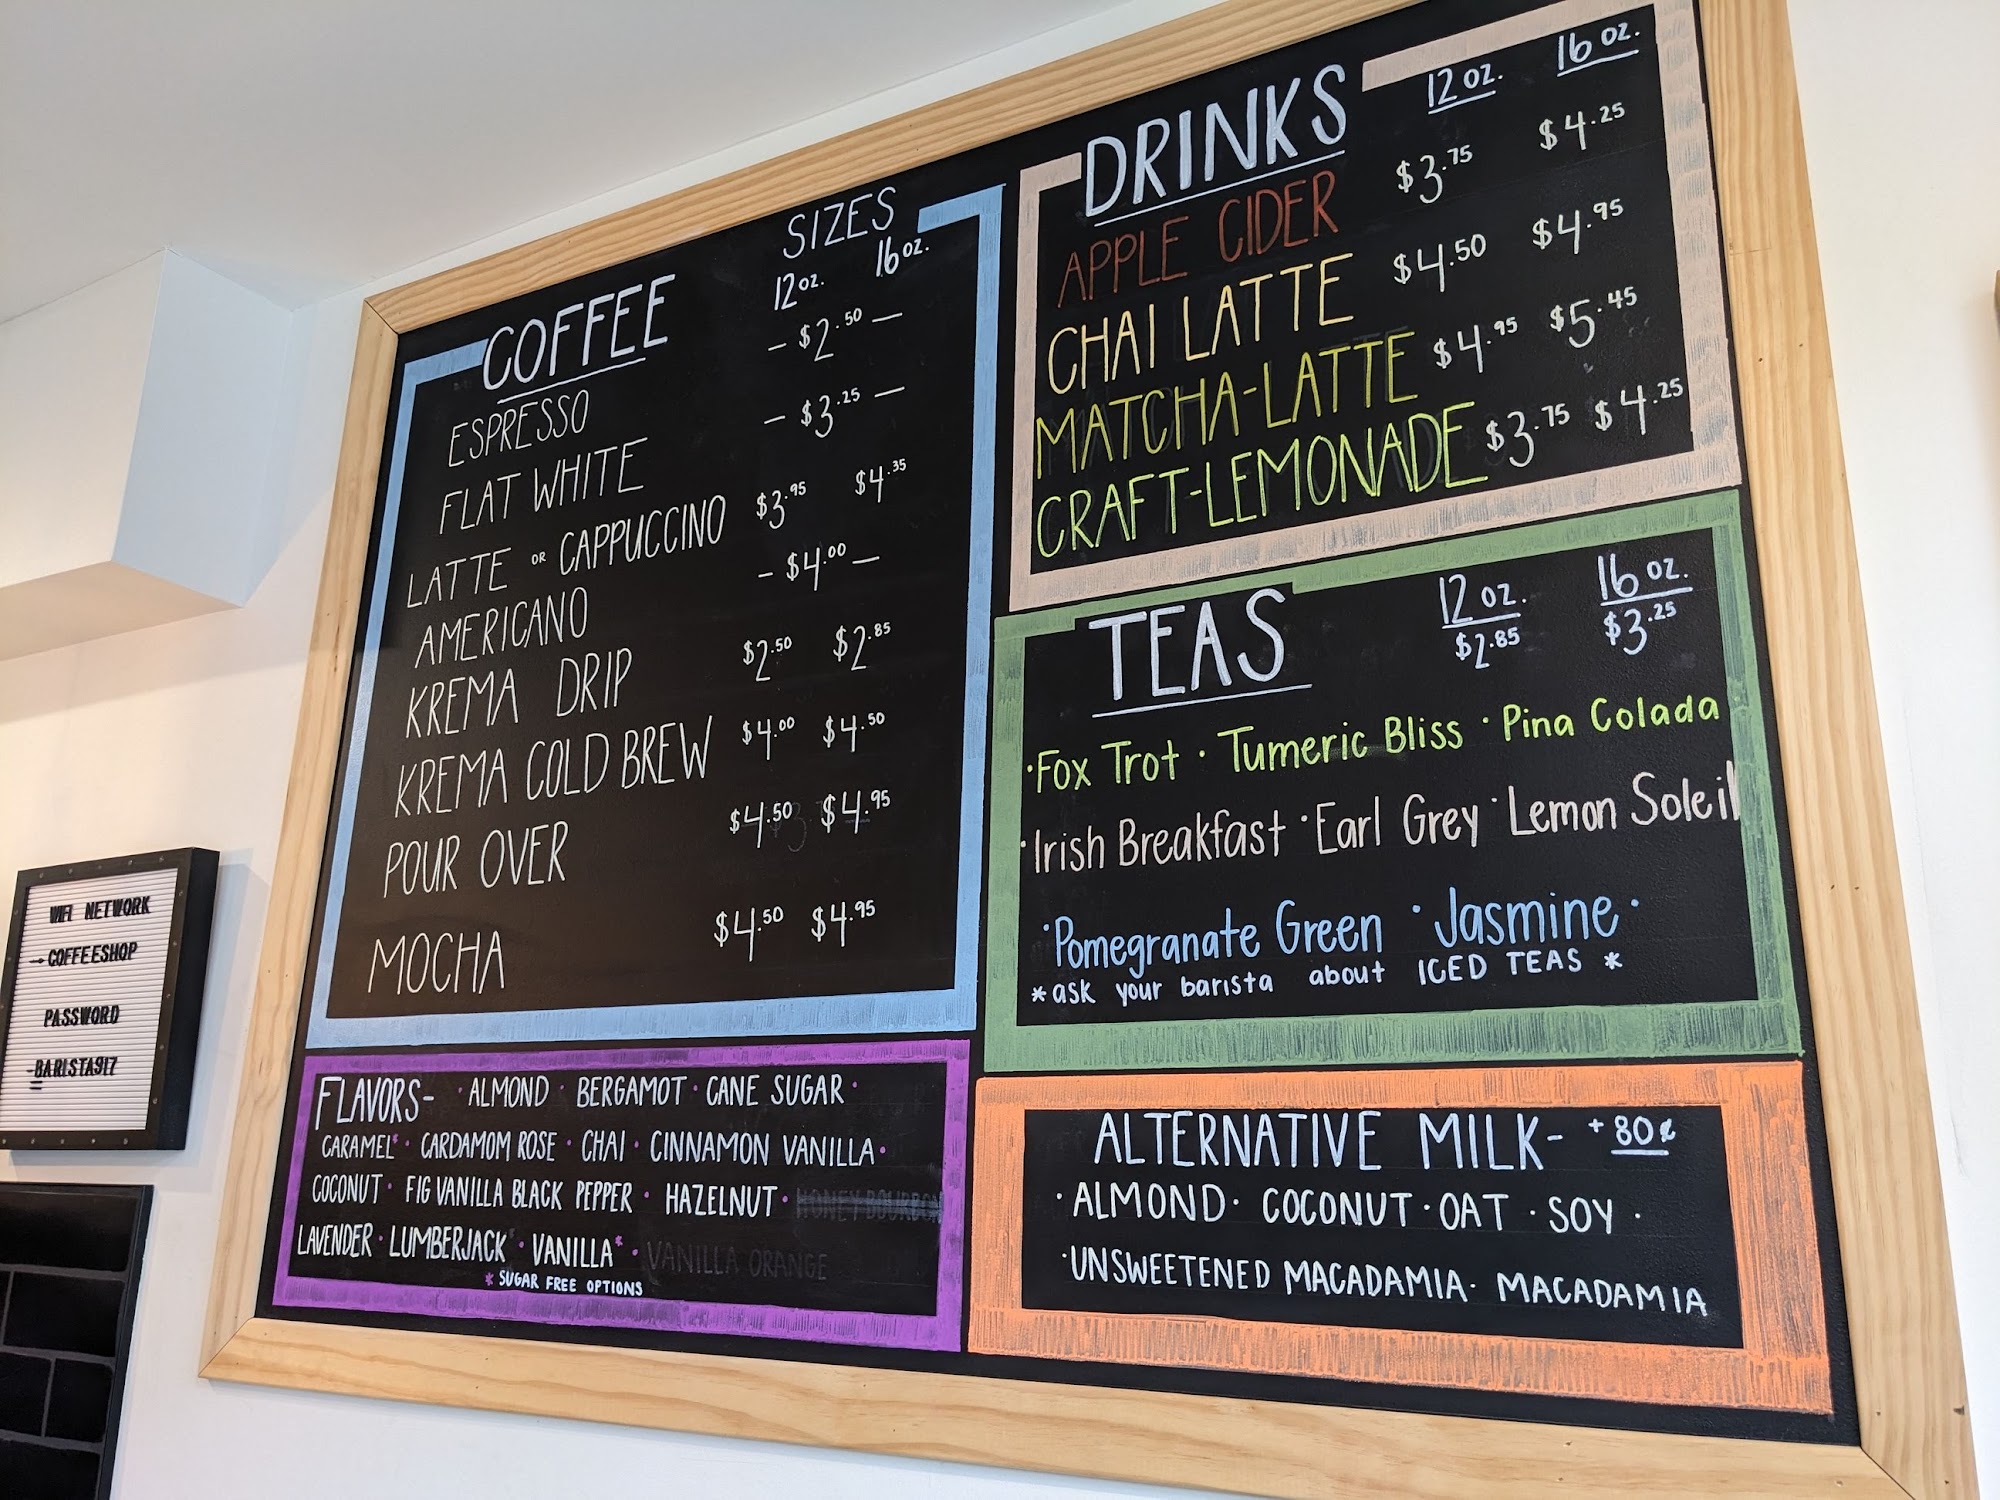 COFFEE SIZES
12 oz. 16 oz.
ESPRESSO - $2.50 -
FLAT WHITE - $3.25 -
LATTE OR CAPPUCCINO $3.95 $4.35
AMERICANO - $4.00 -
KREMA DRIP $2.50 $2.85
KREMA COLD BREW $4.00 $4.50
POUR OVER $4.50 $4.95
MOCHA $4.50 $4.95
DRINKS 12 oz. 16 oz.
APPLE CIDER $3.75 $4.25
CHAI LATTE $4.50 $4.95
MATCHA-LATTE $4.95 $5.45
CRAFT-LEMONADE $3.75 $4.25
TEAS 12 oz. 16 oz.
$2.85 $3.25
·Fox Trot · Tumeric Bliss · Pina Colada
·Irish Breakfast · Earl Grey · Lemon Soleil
·Pomegranate Green · Jasmine ·
*ask your barista about ICED TEAS *
FLAVORS- · ALMOND · BERGAMOT · CANE SUGAR ·
CARAMEL* · CARDAMOM ROSE · CHAI · CINNAMON VANILLA ·
COCONUT · FIG VANILLA BLACK PEPPER · HAZELNUT · HONEY BOURBON
LAVENDER · LUMBERJACK* · VANILLA* · VANILLA ORANGE
* SUGAR FREE OPTIONS
ALTERNATIVE MILK- +80¢
· ALMOND · COCONUT · OAT · SOY ·
· UNSWEETENED MACADAMIA · MACADAMIA
WIFI NETWORK
→COFFEESHOP
PASSWORD
-BARISTA917